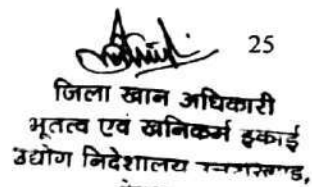 25
जिला खान अधिकारी
भूतत्व एवं खनिकर्म इकाई
उद्योग निदेशालय उत्तराखण्ड,